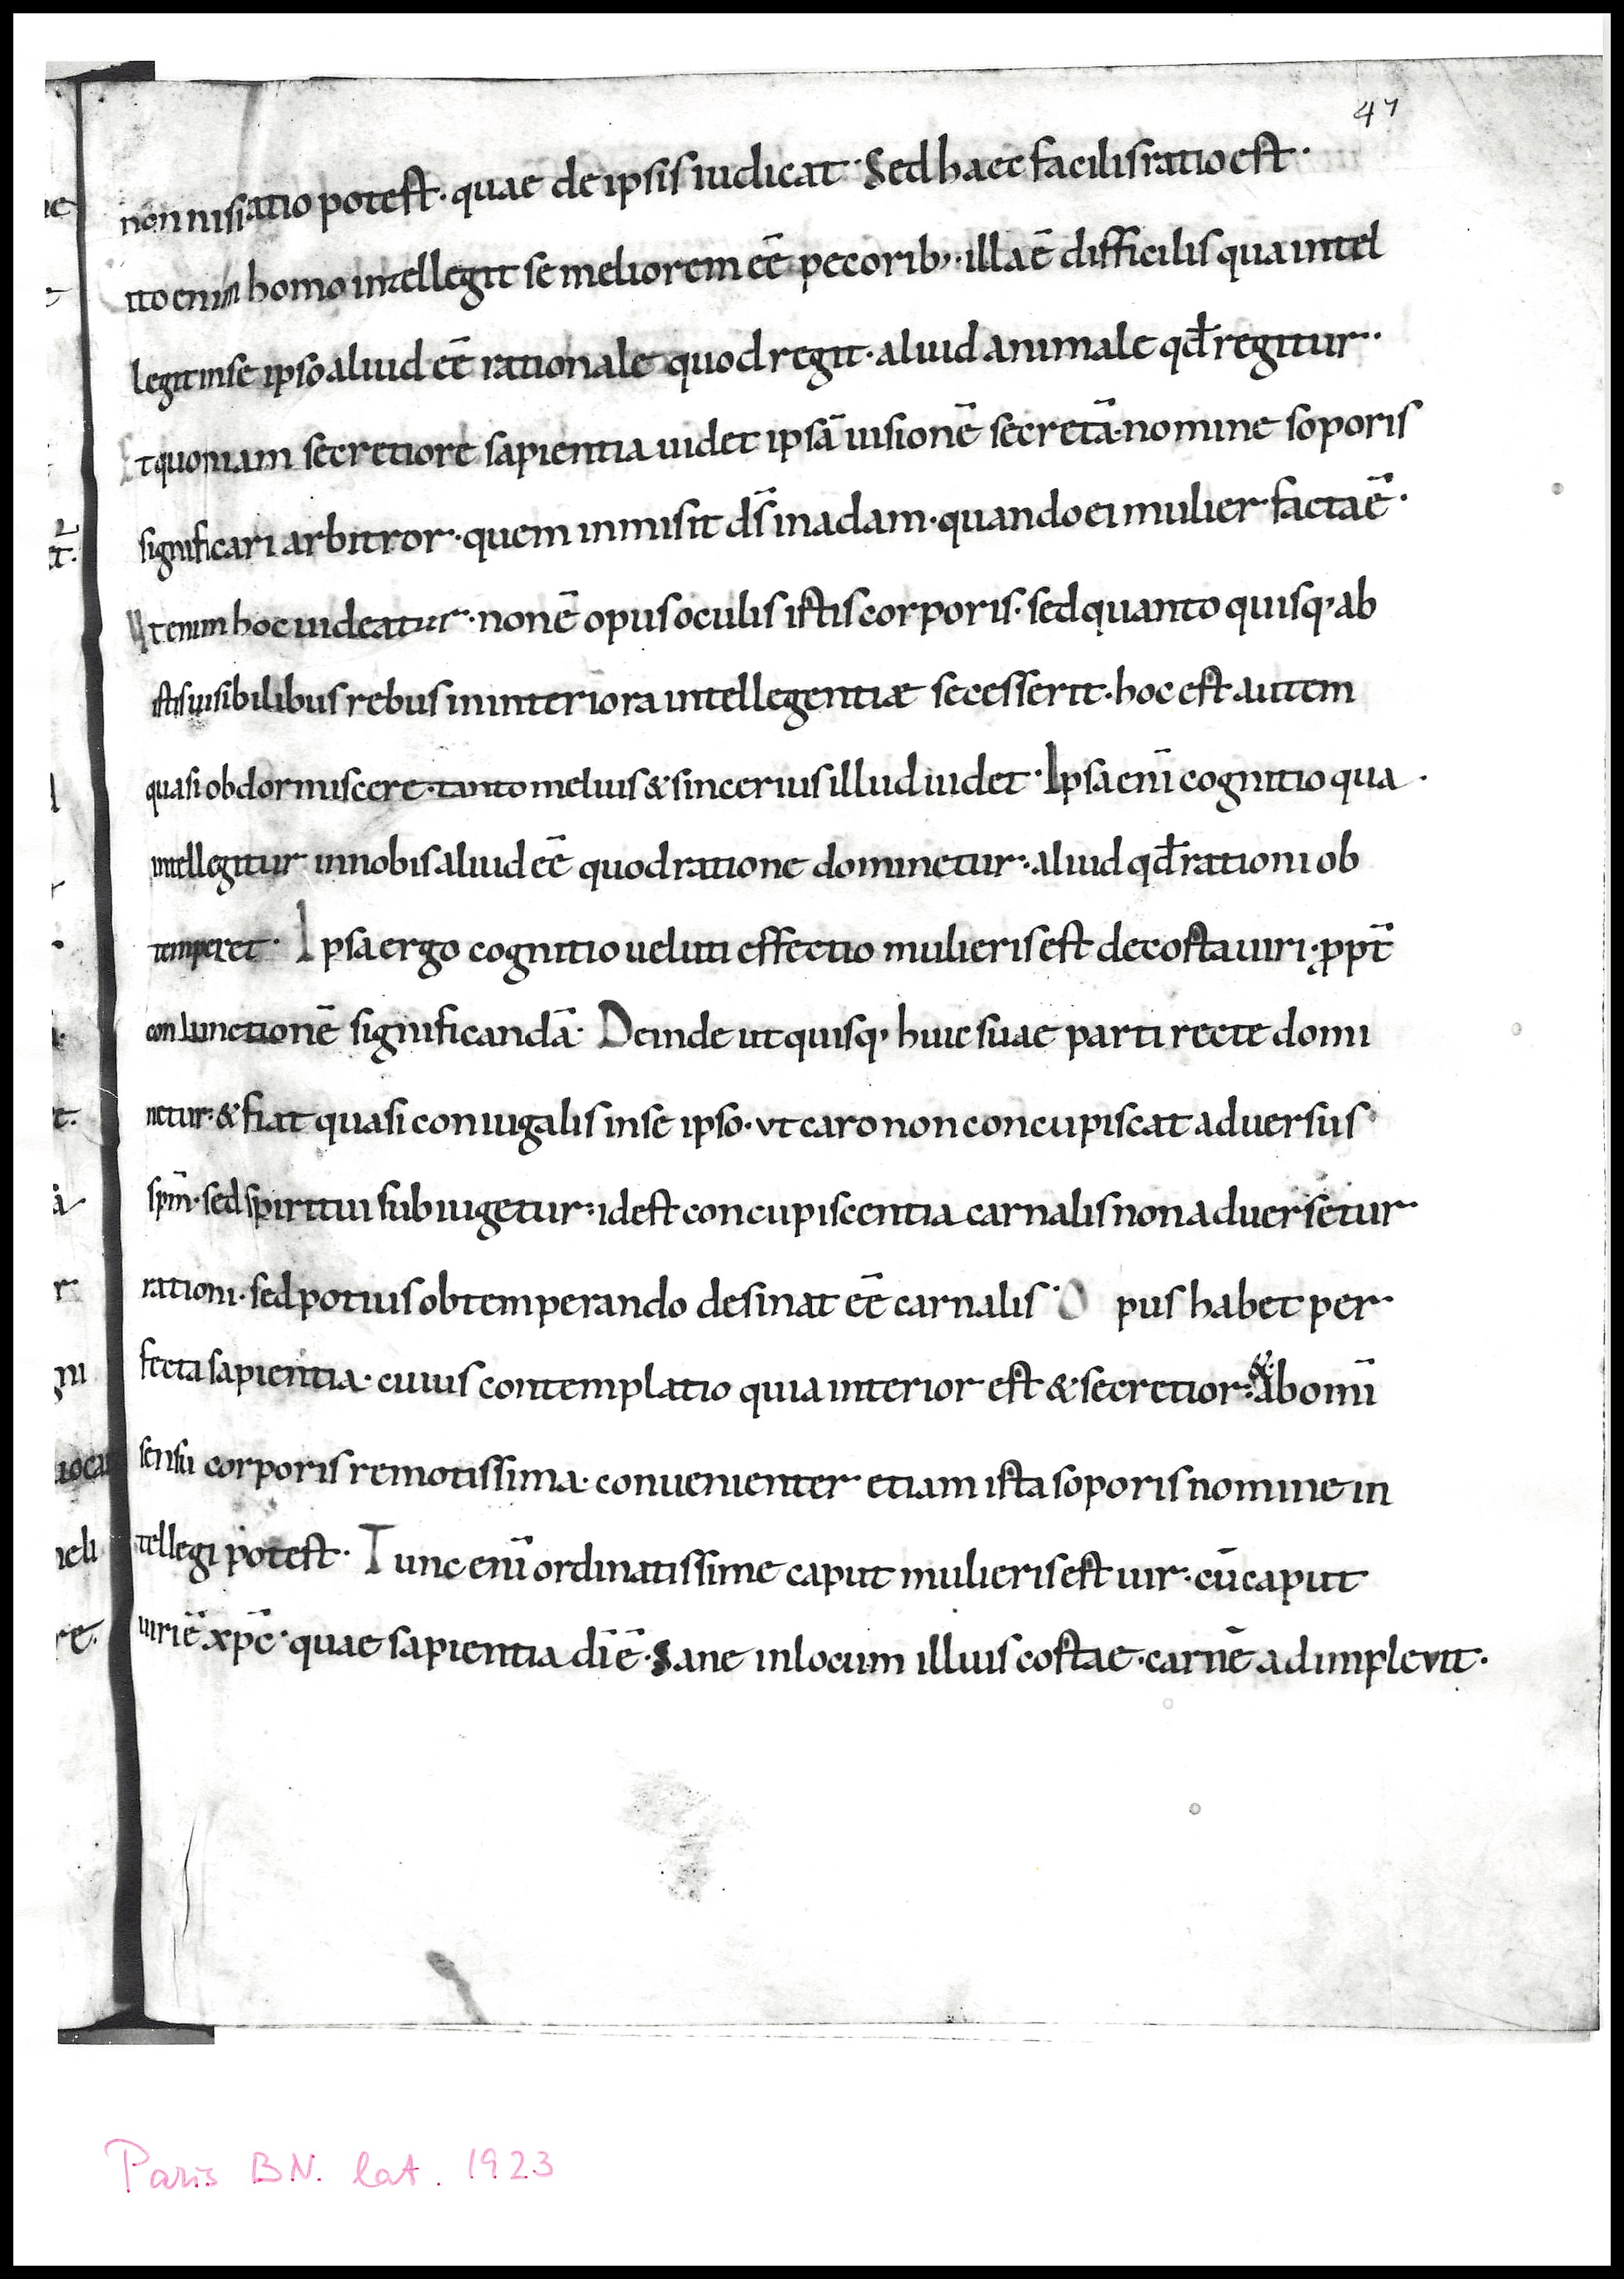 47
non nisi ratio potest · quae de ipsis iudicat · Sed haec facilis ratio est ·
ito enim homo intellegit se meliorem eē pecorib; · illa ē difficilis qua intel
legit in se ipso aliud eē rationale quod regit · aliud animale qđ regitur ·
Et quoniam secretiore sapientia uidet ipsā uisionē secretā · nomine soporis
significari arbitror · quem inmisit ds̄ in adam · quando ei mulier facta ē ·
Ut enim hoc uideatur · non ē opus oculis istis corporis · sed quanto quisq; ab
istis uisibilibus rebus in interiora intellegentiæ secesserit · hoc est autem
quasi obdormiscere · tanto melius & sincerius illud uidet · Ipsa enī cognitio qua ·
intellegitur in nobis aliud eē quod ratione dominetur · aliud qđ rationi ob
temperet · Ipsa ergo cognitio ueluti effectio mulieris est de costa uiri · ppt̄
coniunctionē significandā · Deinde ut quisq; huic suae parti recte domi
netur · & fiat quasi coniugalis in se ipso · ut caro non concupiscat aduersus
spm̄ · sed spiritui subiugetur · id est concupiscentia carnalis non aduersetur
rationi · sed potius obtemperando desinat eē carnalis · Opus habet per
fecta sapientia · cuius contemplatio quia interior est & secretior · & ab omī
sensu corporis remotissima · conuenienter etiam ista soporis nomine in
tellegi potest · Tunc enī ordinatissime caput mulieris est uir · cū caput
uiri ē xp̄c · quae sapientia dī ē · Sane in locum illius costae · carnē adimpleuit ·
Paris BN. lat. 1923